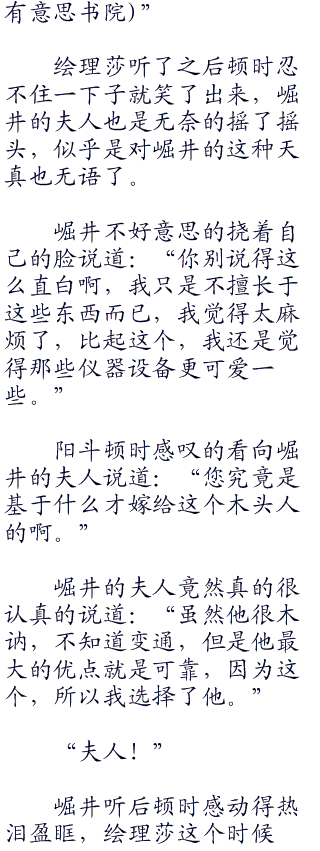 有意思书院)”
绘理莎听了之后顿时忍
不住一下子就笑了出来，崛
井的夫人也是无奈的摇了摇
头，似乎是对崛井的这种天
真也无语了。
崛井不好意思的挠着自
己的脸说道：“你别说得这
么直白啊，我只是不擅长于
这些东西而已，我觉得太麻
烦了，比起这个，我还是觉
得那些仪器设备更可爱一
些。”
阳斗顿时感叹的看向崛
井的夫人说道：“您究竟是
基于什么才嫁给这个木头人
的啊。”
崛井的夫人竟然真的很
认真的说道：“虽然他很木
讷，不知道变通，但是他最
大的优点就是可靠，因为这
个，所以我选择了他。”
“夫人！”
崛井听后顿时感动得热
泪盈眶，绘理莎这个时候